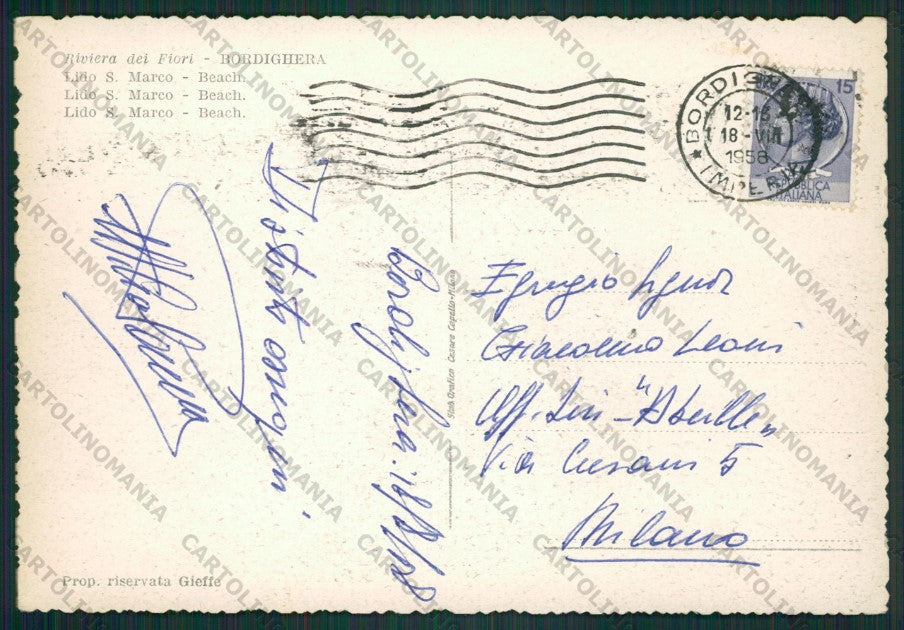 Riviera dei Fiori - BORDIGHERA
Lido S. Marco - Beach.
Lido S. Marco - Beach.
Lido S. Marco - Beach.
BORDIGHERA
12-15
18-VIII
1958
(IMPERIA)
15
REPUBBLICA
ITALIANA
Distinti ossequi
Bordighera: 18/8/58
Stab. Grafico Cesare Capello-Milano
Egregio Signor
Giacomo Leoni
Uff. Sin - "Abeille"
Via Cusani 5
Milano
Prop. riservata Gieffe
CARTOLINOMANIA